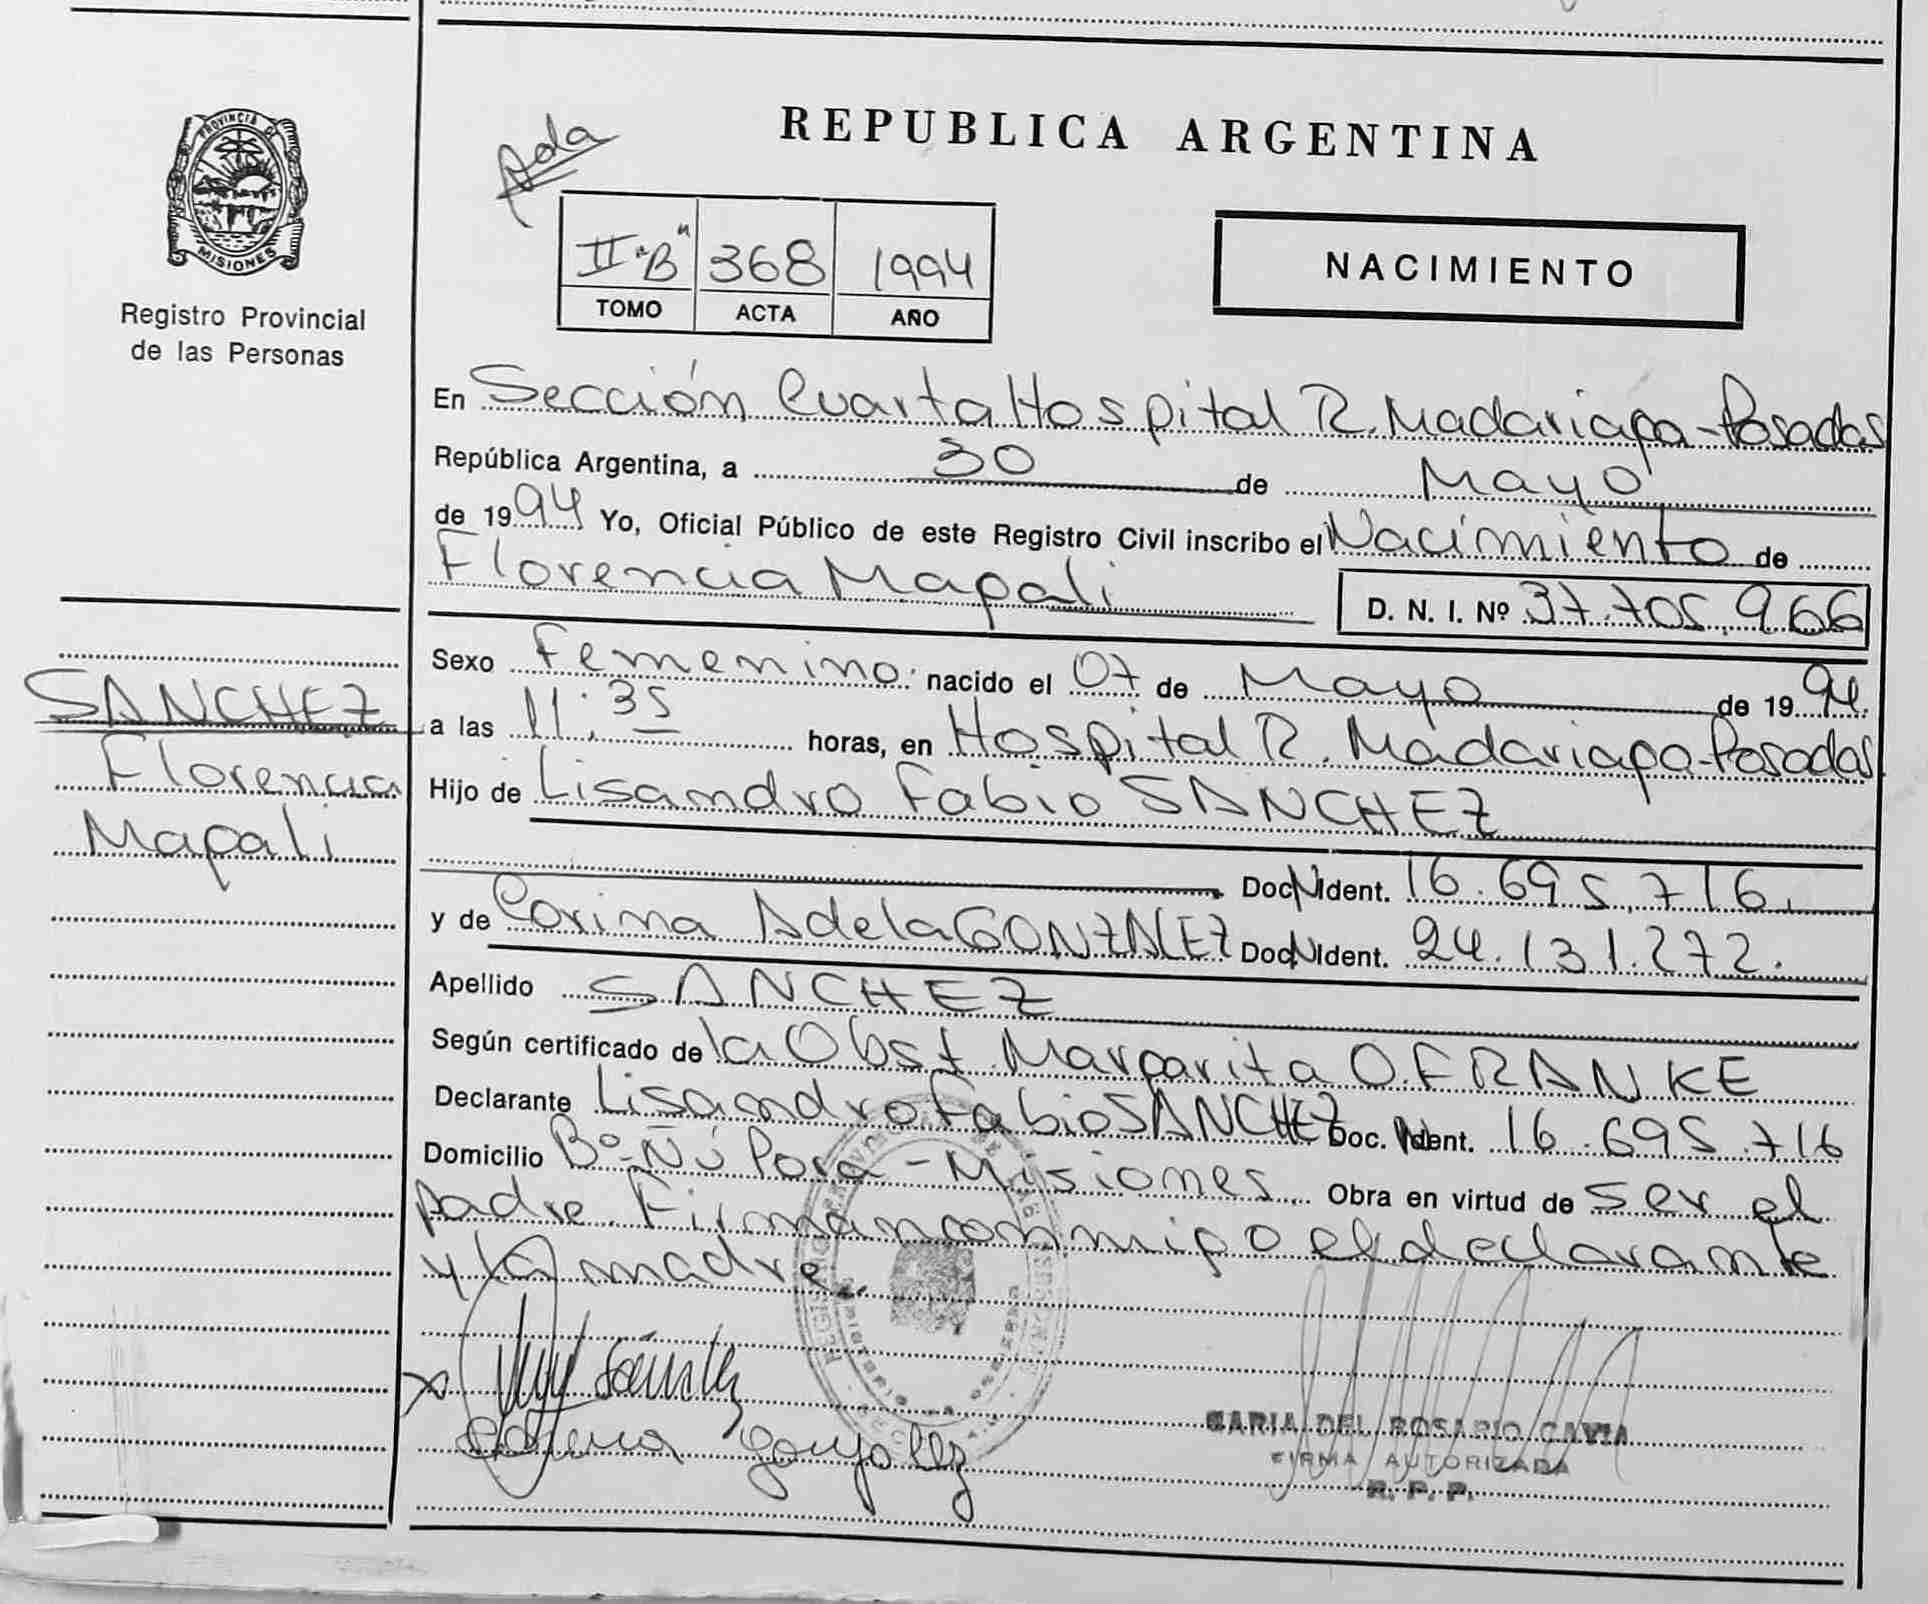 PROVINCIA DE
MISIONES
Registro Provincial
de las Personas
SANCHEZ
Florencia
Magali
Ada
REPUBLICA ARGENTINA
II "B" 368 1994
TOMO ACTA AÑO
NACIMIENTO
En Sección Cuarta Hospital R. Madariaga-Posadas
República Argentina, a 30 de Mayo
de 1994 Yo, Oficial Público de este Registro Civil inscribo el Nacimiento de
Florencia Magali D. N. I. Nº 37.705.966
Sexo Femenino nacido el 07 de Mayo de 1994.
a las 11:35 horas, en Hospital R. Madariaga-Posadas
Hijo de Lisandro Fabio SANCHEZ
Doc. Ident. 16.695.716.
y de Corina Adela GONZALEZ Doc. Ident. 24.131.272.
Apellido SANCHEZ
Según certificado de la Obst. Margarita O. FRANKE
Declarante Lisandro Fabio SANCHEZ Doc. Ident. 16.695.716
Domicilio Bº Ñú Pora - Misiones Obra en virtud de ser el
padre. Firman conmigo el declarante
y la madre.
x Sánchez
Corina González
MARIA DEL ROSARIO GAVIA
FIRMA AUTORIZADA
R. P. P.